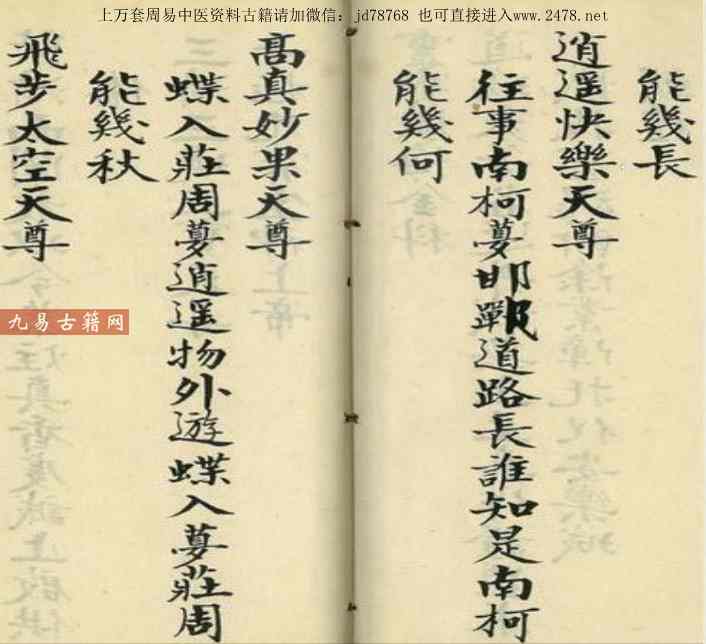 上万套周易中医资料古籍请加微信：jd78768 也可直接进入www.2478.net
能幾長
逍遥快樂天尊
往事南柯夢邯鄲道路長誰知是南柯
能幾何
高真妙果天尊
蝶入莊周夢逍遥物外遊蝶入夢莊周
能幾秋
飛步太空天尊
九易古籍网